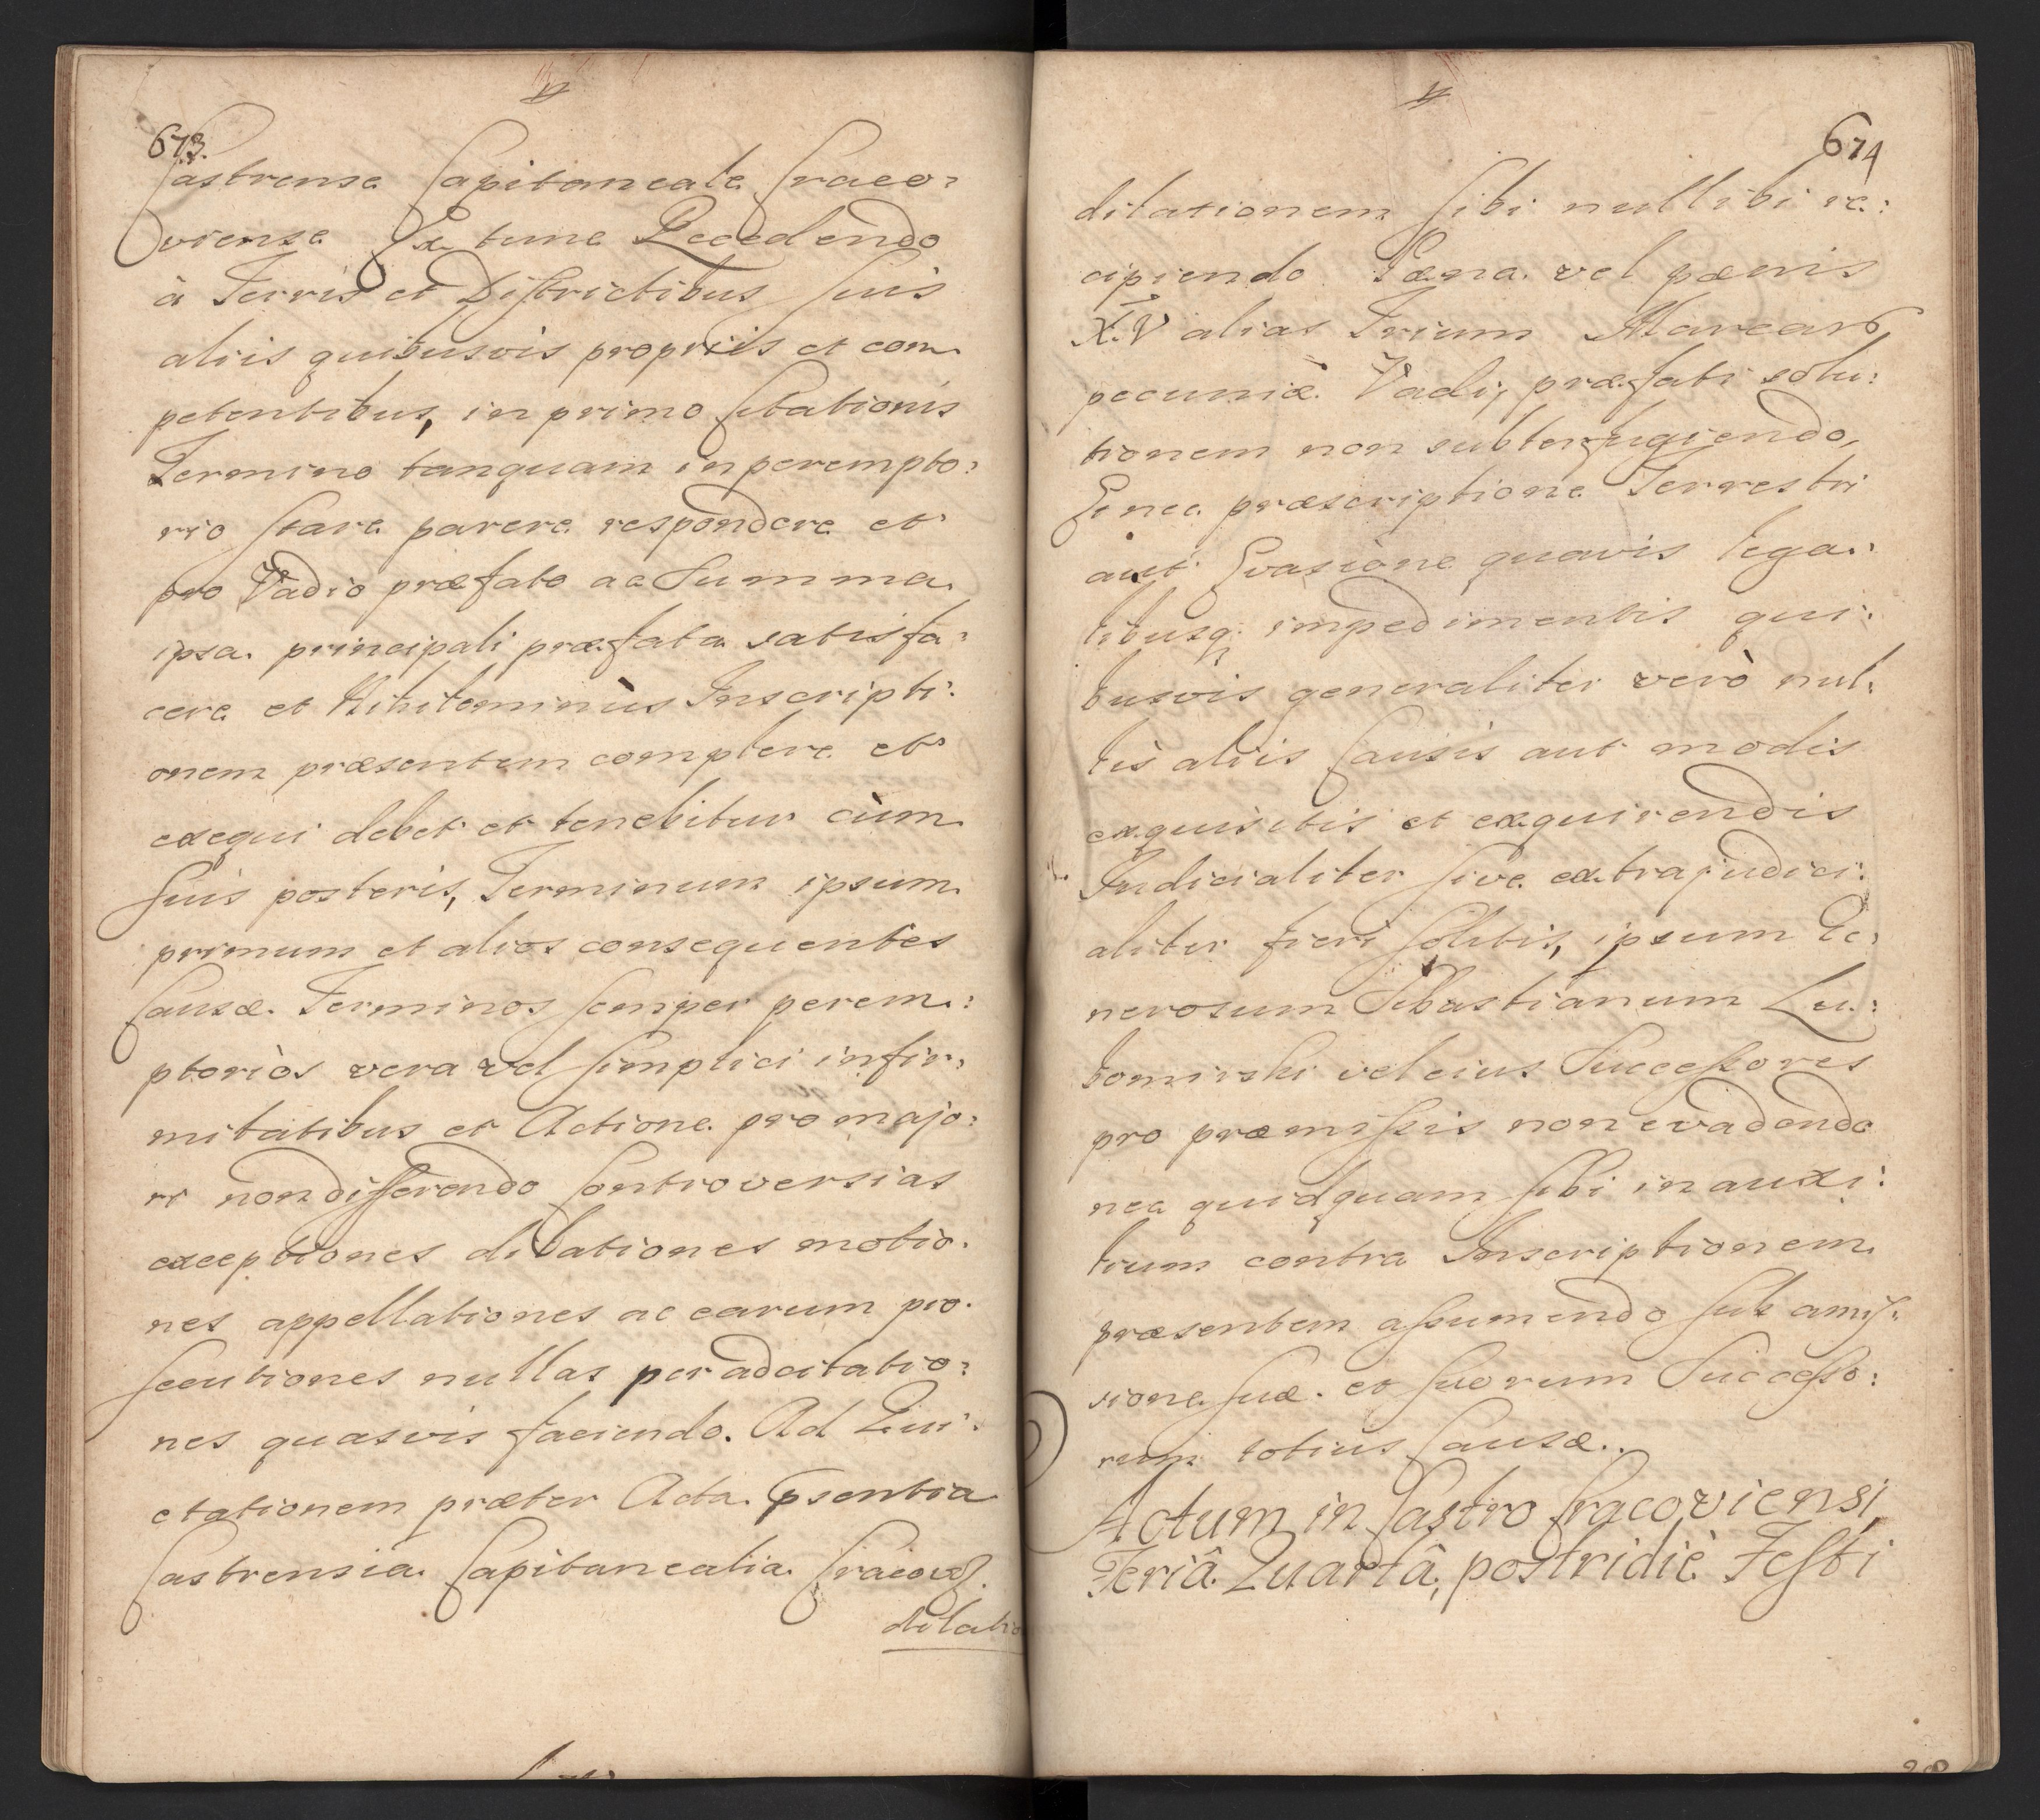 673.
Castrense Capitaneale Craco:
viense Ex tunc Recedendo
à Terris et Districtibus suis
aliis quibusvis propriis et com
petentibus, in primo Citationis
Termino tanquam in perempto:
rio stare parere respondere et
pro Vadio præfato ac Summa
ipsa principali præfata satisfa:
cere et Nihilominùs Inscripti:
onem præsentem complere et
exequi debet et tenebitur cùm
suis posteris, Terminum ipsum
primum et alios consequentes
Causæ Terminos semper perem:
ptoriòs vera vel simplici infir:
mitatibus et Actione pro majo:
ri non differendo Controversias
exceptiones dilationes motio:
nes appellationes ac earum pro:
secutiones nullas per adcitatio:
nes quasvis faciendo. Ad Qui:
etationem præter Acta psentia
Castrensia Capitanealia Cracov
dilatio
674
dilationem sibi nullibi re:
cipiendo Pæna vel pænis
X.V alias Trium Marcar
pecuniæ Vadij præfati solu:
tionem non subterfugiendo,
Ei nec præscriptione Terrestri
aut Evasione quavis lega:
libusq impedimentis qui:
busvis generaliter verò nul:
lis aliis Causis aut modis
exquisitis et exquirendis
Judicialiter sive extrajudici:
aliter fieri solitis, ipsum Ge:
nerosum Sebastianum Lu:
bomirski vel eius Successores
pro præmissis non evadendo
nec quidquam sibi in auxi:
lium contra Inscriptionem
præsentem assumendo sub amis:
sione suæ et suorum Successo:
rum totius Causæ.
Actum in Castro Cracoviensi
Feriâ Quartâ, postridiè Festi